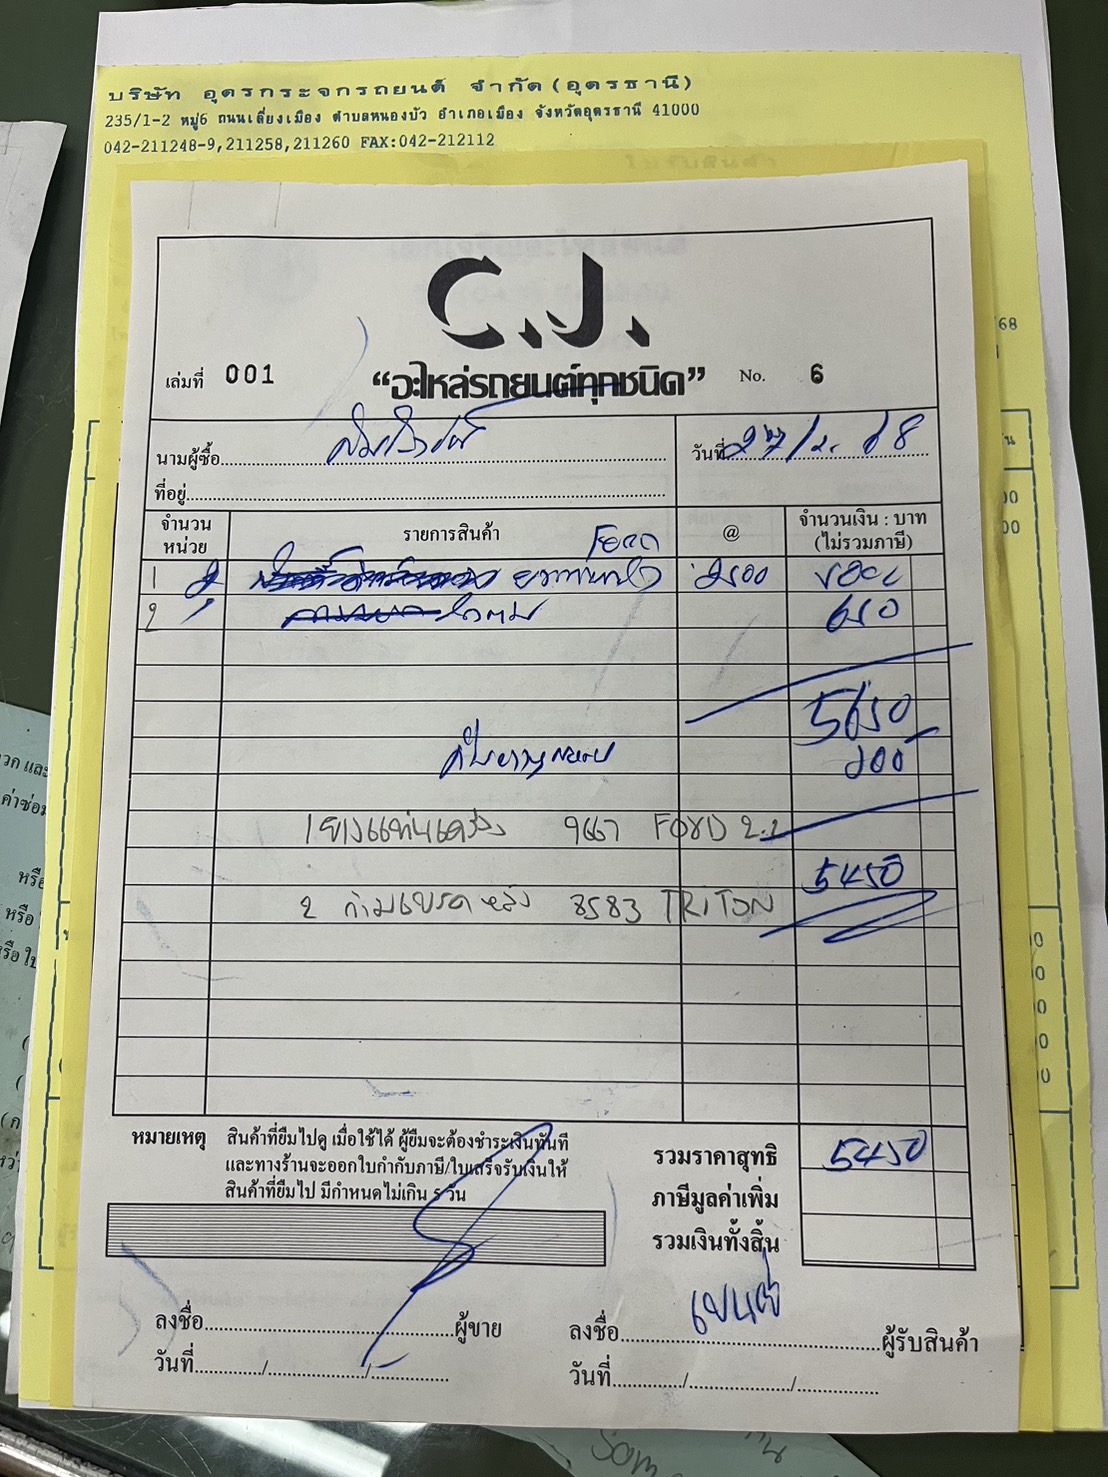 บริษัท อุดรกระจกรถยนต์ จำกัด(อุดรธานี)
235/1-2 หมู่6 ถนนเลี่ยงเมือง ตำบลหนองบัว อำเภอเมือง จังหวัดอุดรธานี 41000
042-211248-9,211258,211260 FAX:042-212112
C.J.
เล่มที่ 001 “อะไหล่รถยนต์ทุกชนิด” No. 6
นามผู้ซื้อ วันที่ 27/2. 68
ที่อยู่
จำนวนหน่วย รายการสินค้า @ จำนวนเงิน : บาท (ไม่รวมภาษี)
FORD
1 2 2500 5000
2 1 650
5650
200
1 ยางแท่นเครื่อง 9667 FORD 2.2
5450
2 ก้ามเบรคหลัง 8583 TRITON
หมายเหตุ สินค้าที่ยืมไปดู เมื่อใช้ได้ ผู้ยืมจะต้องชำระเงินทันที
และทางร้านจะออกใบกำกับภาษี/ใบเสร็จรับเงินให้
สินค้าที่ยืมไป มีกำหนดไม่เกิน 5 วัน
รวมราคาสุทธิ 5450
ภาษีมูลค่าเพิ่ม
รวมเงินทั้งสิ้น
ลงชื่อ ผู้ขาย
ลงชื่อ ผู้รับสินค้า
วันที่ / /
วันที่ / /